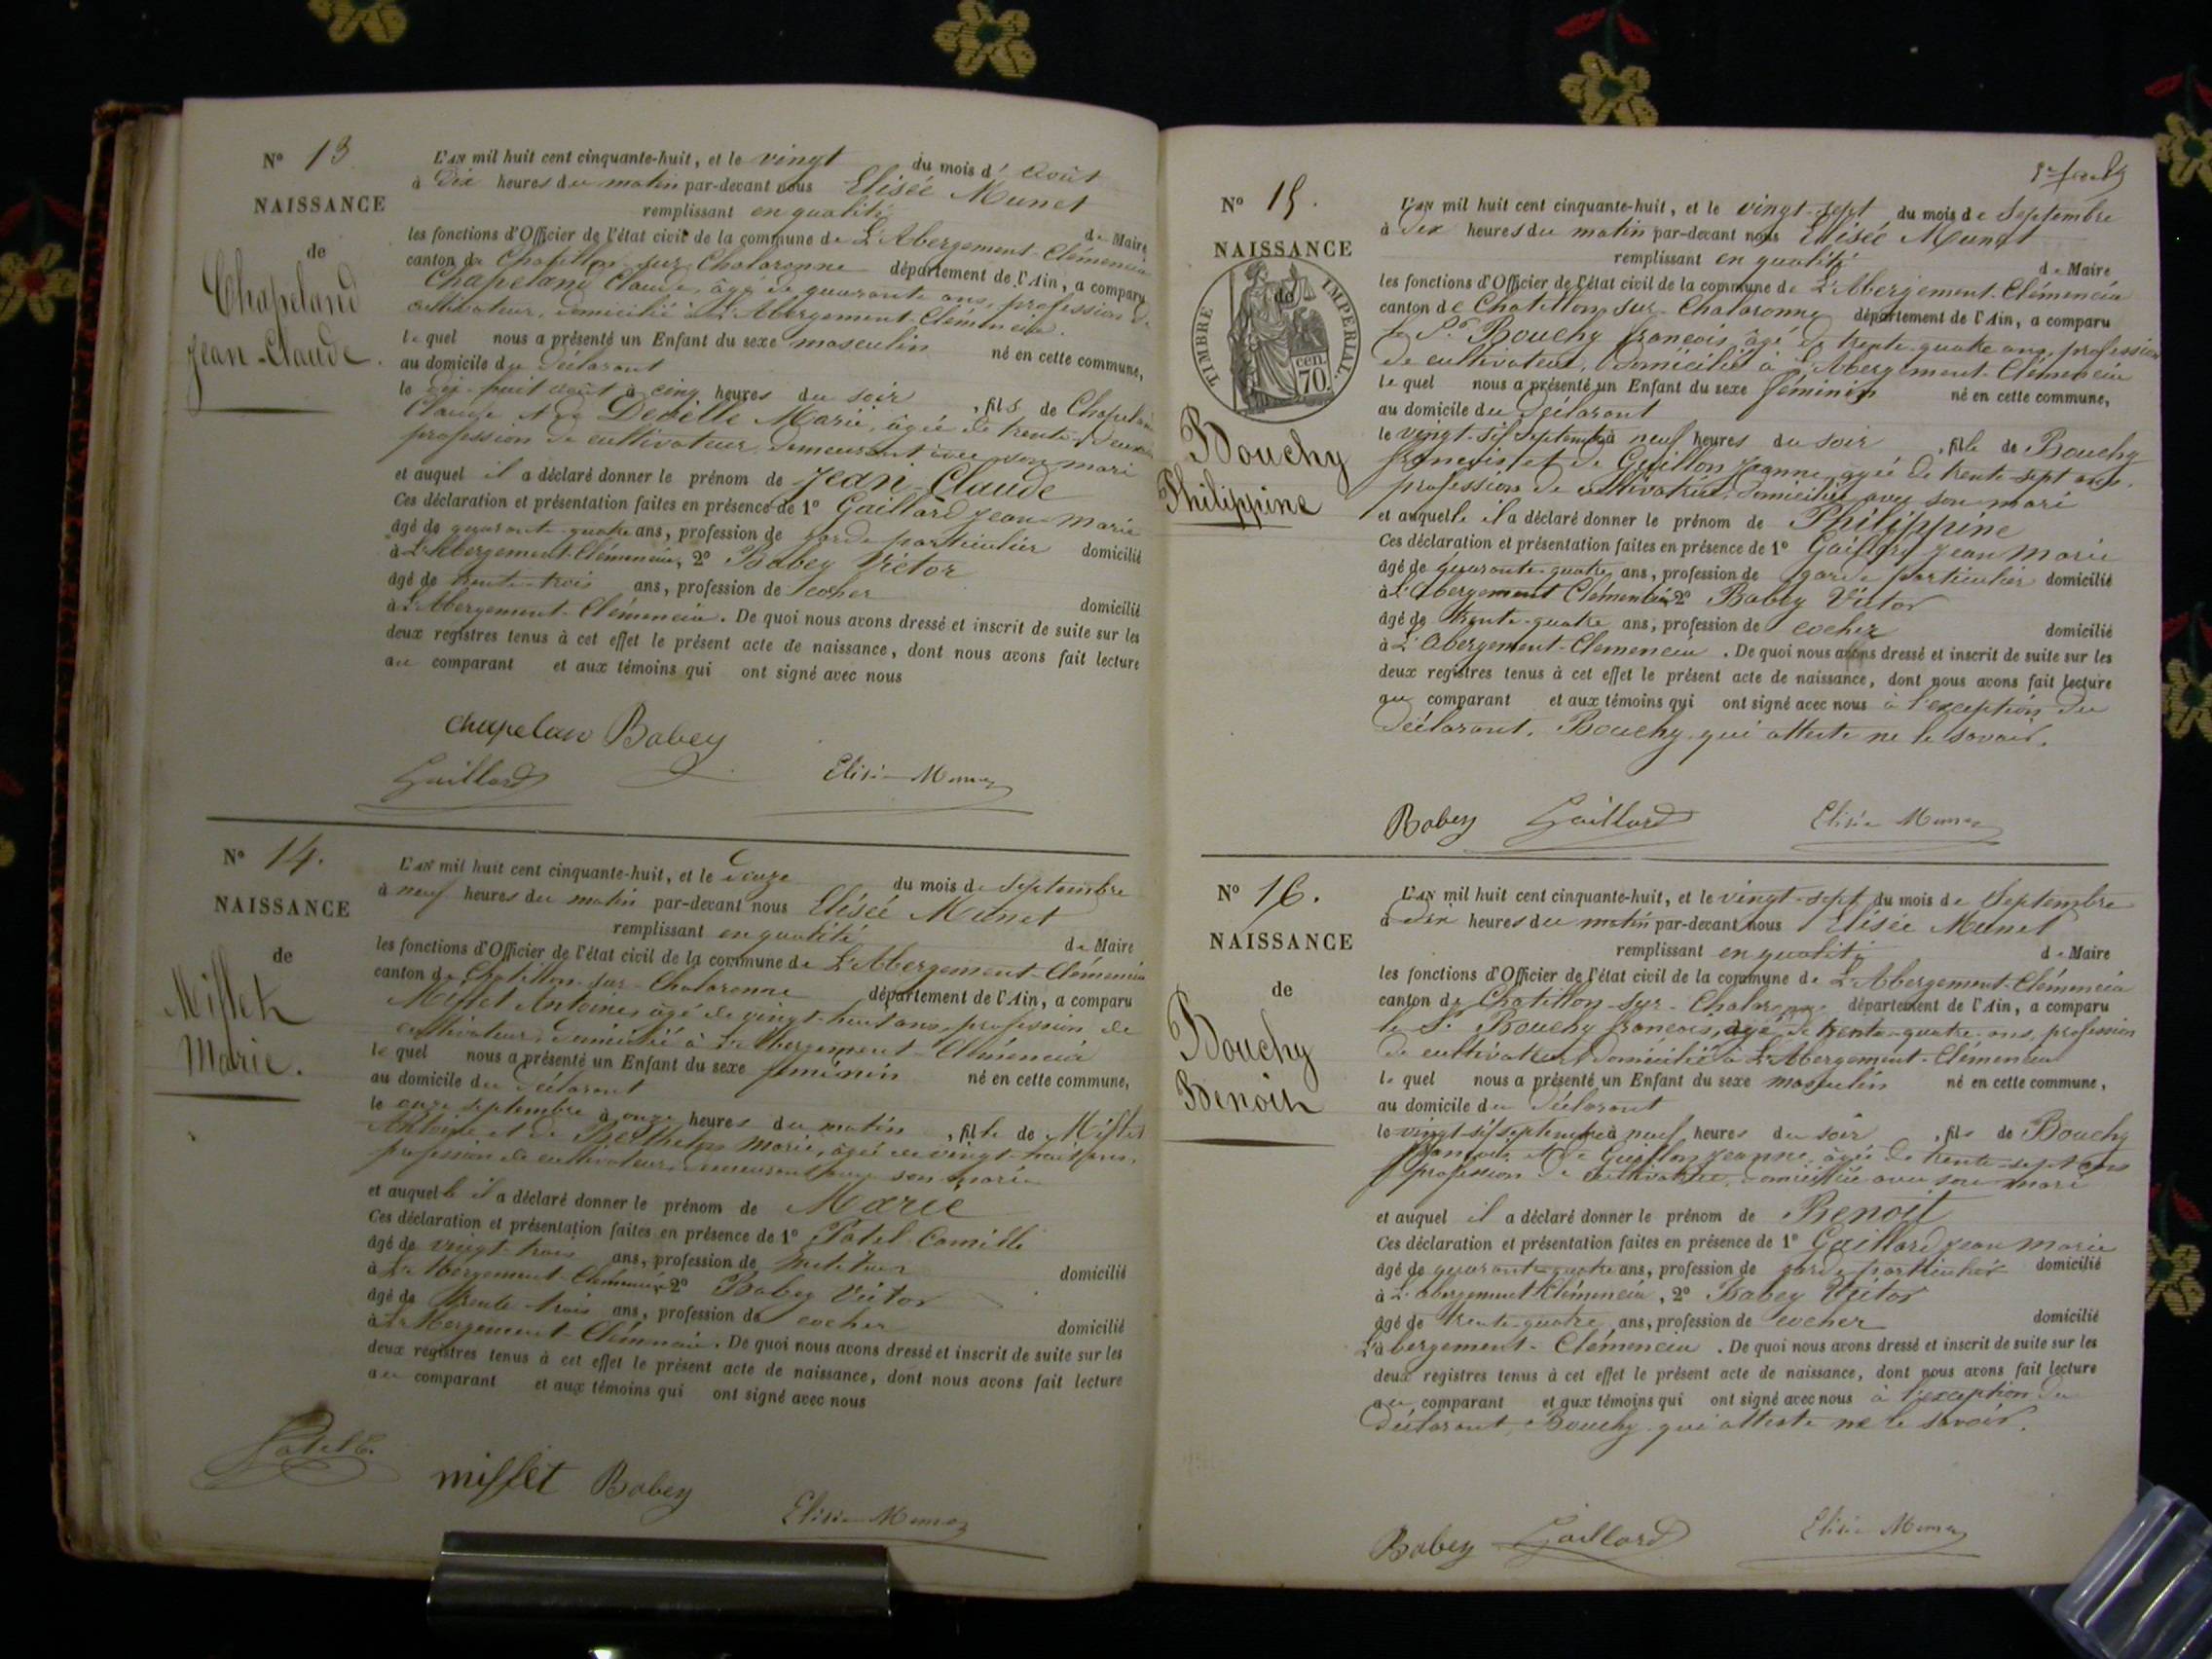 N° 13.
NAISSANCE
de
Chapeland
Jean-Claude.
L'AN mil huit cent cinquante-huit, et le vingt du mois d' Août
à Dix heures du matin par-devant nous Elisée Munet
remplissant en qualité de Maire
les fonctions d'Officier de l'état civil de la commune de L'Abergement-Clémencia
canton de Chatillon-sur-Chalaronne département de l'Ain, a comparu
Chapeland Claude, âgé de quarante ans, profession de
cultivateur, domicilié à L'Abergement-Clémencia.
lequel nous a présenté un Enfant du sexe masculin né en cette commune,
au domicile du Déclarant
le dix-huit août à cinq heures du soir, fils de Chapeland
Claude et de Marie, âgée de trente-deux
profession de cultivateur, demeurant avec son mari
et auquel il a déclaré donner le prénom de Jean-Claude
Ces déclaration et présentation faites en présence de 1° Gaillard Jean-Marie
âgé de quarante-quatre ans, profession de garde particulier domicilié
à L'Abergement-Clémencia, 2° Babey Victor
âgé de trente-trois ans, profession de cocher domicilié
à L'Abergement-Clémencia. De quoi nous avons dressé et inscrit de suite sur les
deux registres tenus à cet effet le présent acte de naissance, dont nous avons fait lecture
au comparant et aux témoins qui ont signé avec nous
Chapelan Babey
Gaillard Elisée Munet
N° 14.
NAISSANCE
de
Misset
Marie.
L'AN mil huit cent cinquante-huit, et le douze du mois de Septembre
à neuf heures du matin par-devant nous Elisée Munet
remplissant en qualité de Maire
les fonctions d'Officier de l'état civil de la commune de L'Abergement-Clémencia
canton de Chatillon-sur-Chalaronne département de l'Ain, a comparu
Misset Antoine, âgé de vingt-huit ans, profession de
cultivateur, domicilié à L'Abergement-Clémencia
lequel nous a présenté un Enfant du sexe féminin né en cette commune,
au domicile du Déclarant
le onze septembre à onze heures du matin, fille de Misset
Antoine et de Marie, âgée de vingt-huit ans,
profession de cultivateur, demeurant avec son mari
et auquelle il a déclaré donner le prénom de Marie
Ces déclaration et présentation faites en présence de 1° Patel Camille
âgé de vingt-trois ans, profession de domicilié
à L'Abergement-Clémencia 2° Babey Victor
âgé de trente-trois ans, profession de cocher domicilié
à L'Abergement-Clémencia. De quoi nous avons dressé et inscrit de suite sur les
deux registres tenus à cet effet le présent acte de naissance, dont nous avons fait lecture
au comparant et aux témoins qui ont signé avec nous
Patel C.
misset Babey
Elisée Munet
N° 15.
NAISSANCE
de
TIMBRE IMPÉRIAL.
70 cen.
Bouchy
Philippine
L'AN mil huit cent cinquante-huit, et le vingt-sept du mois de Septembre
à dix heures du matin par-devant nous Elisée Munet
remplissant en qualité de Maire
les fonctions d'Officier de l'état civil de la commune de L'Abergement-Clémencia
canton de Chatillon-sur-Chalaronne département de l'Ain, a comparu
le Sr Bouchy françois, âgé de trente-quatre ans, profession
de cultivateur, domicilié à L'Abergement-Clémencia
lequel nous a présenté un Enfant du sexe féminin né en cette commune,
au domicile du Déclarant
le vingt-six septembre à neuf heures du soir, fille de Bouchy
françois et de Guillon Jeanne, âgée de trente-sept ans.
profession de cultivatrice, domiciliée avec son mari
et auquelle il a déclaré donner le prénom de Philippine
Ces déclaration et présentation faites en présence de 1° Gaillard Jean Marie
âgé de quarante-quatre ans, profession de garde particulier domicilié
à L'Abergement Clémencia 2° Babey Victor
âgé de trente-quatre ans, profession de cocher domicilié
à L'Abergement-Clemencia. De quoi nous avons dressé et inscrit de suite sur les
deux registres tenus à cet effet le présent acte de naissance, dont nous avons fait lecture
au comparant et aux témoins qui ont signé avec nous à l'exception du
Déclarant, Bouchy qui atteste ne le savoir.
Babey Gaillard Elisée Munet
N° 16.
NAISSANCE
de
Bouchy
Benoit
L'AN mil huit cent cinquante-huit, et le vingt-sept du mois de Septembre
à dix heures du matin par-devant nous Elisée Munet
remplissant en qualité de Maire
les fonctions d'Officier de l'état civil de la commune de L'Abergement-Clémencia
canton de Chatillon-sur-Chalaronne département de l'Ain, a comparu
le S. Bouchy françois, âgé de trente-quatre ans, profession
de cultivateur, domicilié à L'Abergement-Clémencia
lequel nous a présenté un Enfant du sexe masculin né en cette commune,
au domicile du Déclarant
le vingt-six septembre à neuf heures du soir, fils de Bouchy
françois et de Guillon Jeanne, âgée de trente-sept ans
profession de cultivatrice, domiciliée avec son mari
et auquel il a déclaré donner le prénom de Benoit
Ces déclaration et présentation faites en présence de 1° Gaillard Jean Marie
âgé de quarante-quatre ans, profession de garde particulier domicilié
à L'Abergement Clémencia, 2° Babey Victor
âgé de trente-quatre ans, profession de cocher domicilié
L'abergement-Clémencia. De quoi nous avons dressé et inscrit de suite sur les
deux registres tenus à cet effet le présent acte de naissance, dont nous avons fait lecture
au comparant et aux témoins qui ont signé avec nous à l'exception du
Déclarant, Bouchy qui atteste ne le savoir.
Babey Gaillard Elisée Munet